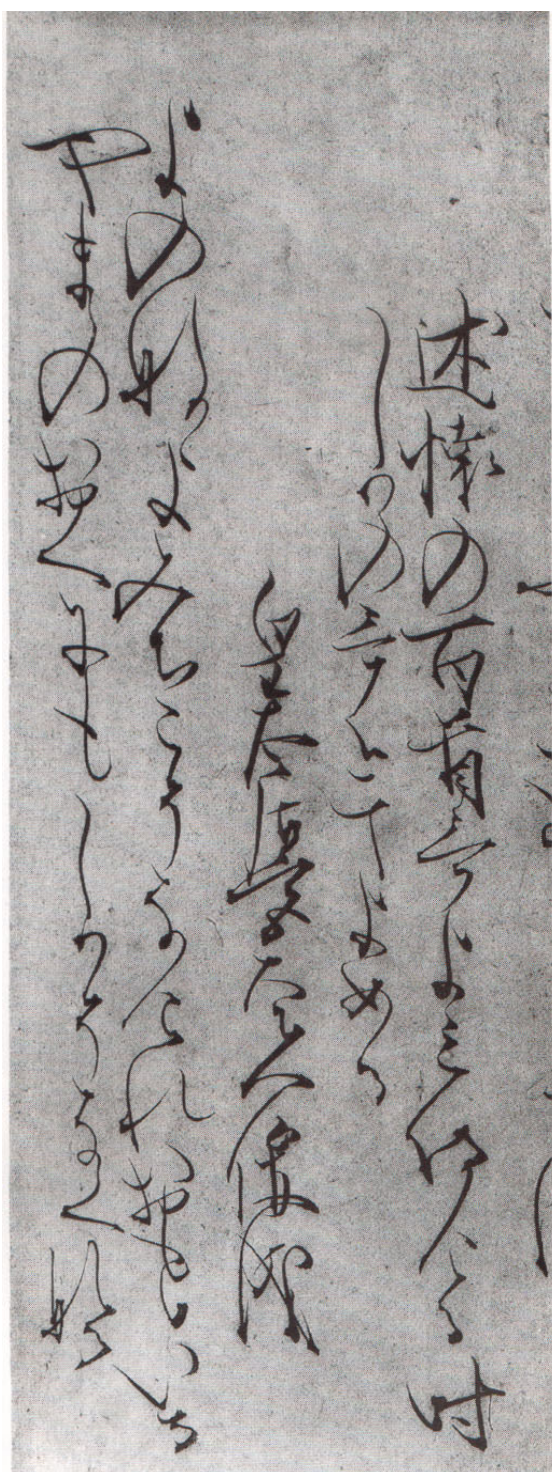 述懐の百首哥よみ侍ける時
しかの哥とてよめる
皇太后宮大夫俊成
よのなかよみちこそなけれおもひいる
やまのおくにもしかそなくなる